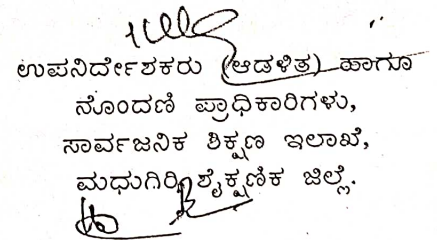 ಉಪನಿರ್ದೇಶಕರು (ಆಡಳಿತ) ಹಾಗೂ
ನೊಂದಣಿ ಪ್ರಾಧಿಕಾರಿಗಳು,
ಸಾರ್ವಜನಿಕ ಶಿಕ್ಷಣ ಇಲಾಖೆ,
ಮಧುಗಿರಿ ಶೈಕ್ಷಣಿಕ ಜಿಲ್ಲೆ.